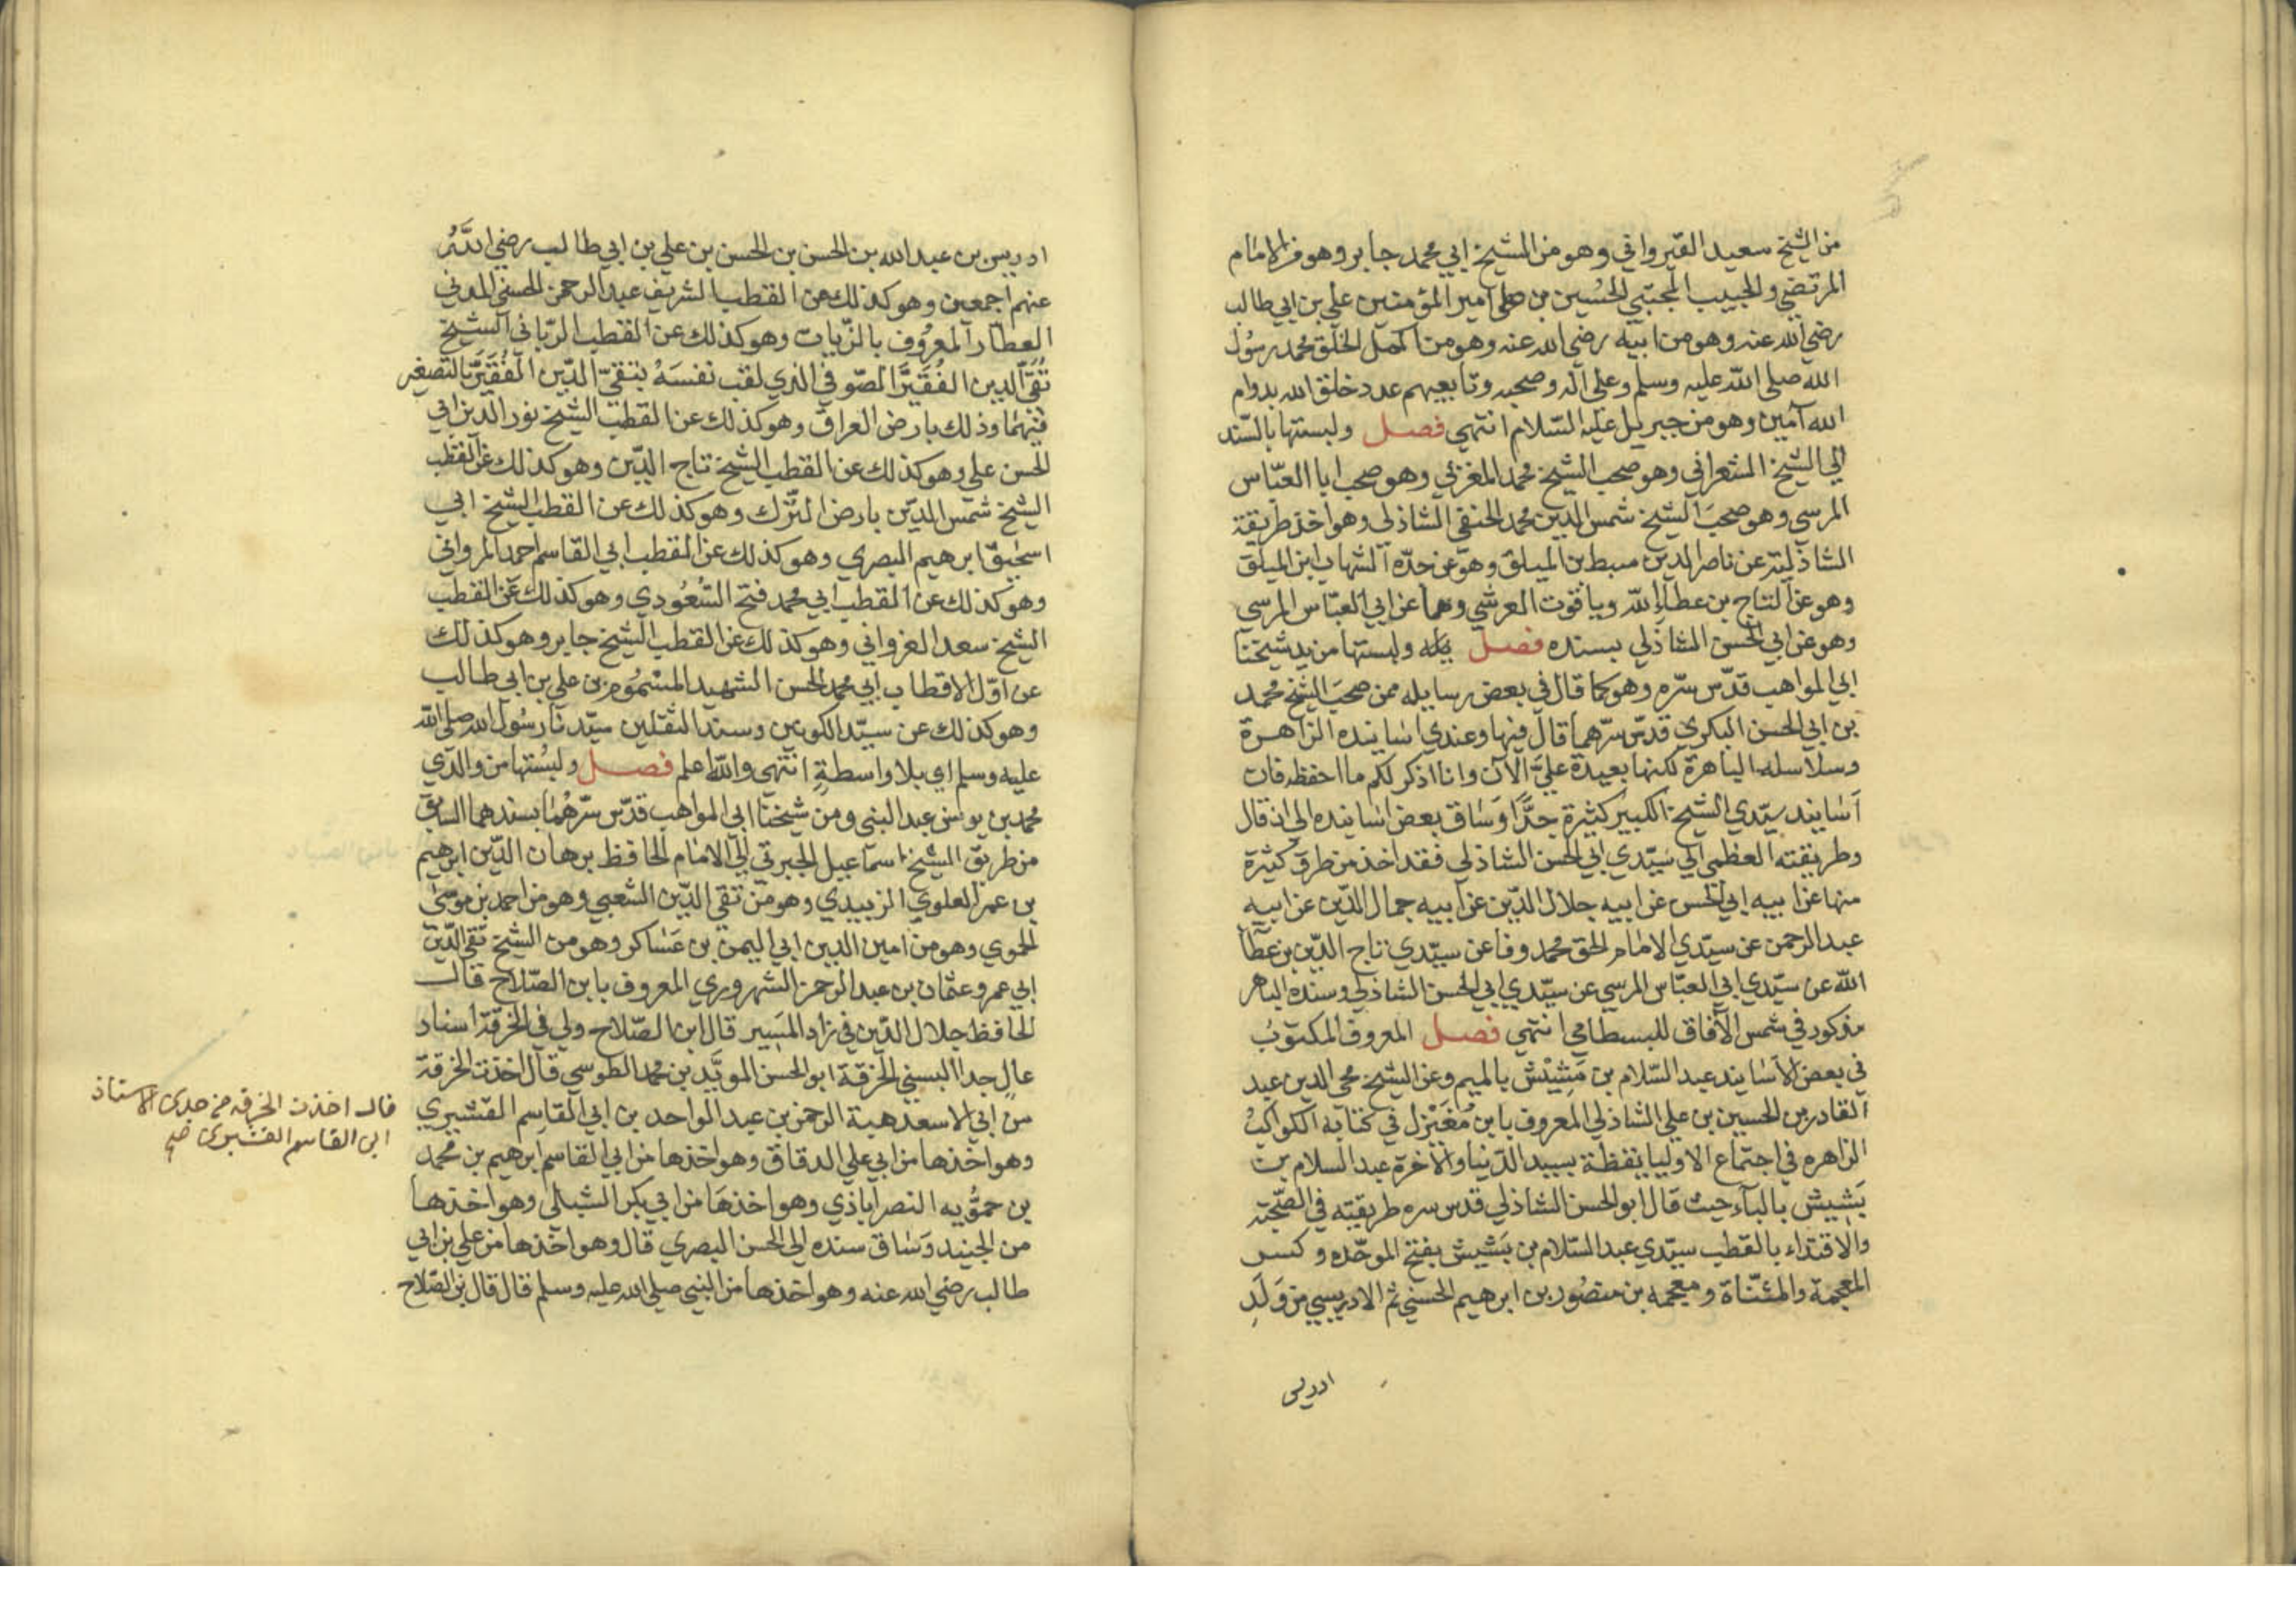 من الشيخ سعيد القيرواني وهو من الشيخ ابي محمد جابر وهو من الامام
المرتضي والحبيب المجتبي الحسين بن علي امير المؤمنين علي بن ابي طالب
رضي الله عنه وهو من ابيه رضي الله عنه وهو من اكمل الخلق محمد رسول
الله صلي الله عليه وسلم وعلي آله وصحبه وتابعيهم عدد خلق الله بدوام
الله آمين وهو من جبريل عليه السلام انتهي فصل ولبستها بالسند
الي الشيخ الشعراني وهو صحب الشيخ محمد المغربي وهو صحب ابا العباس
المرسي وهو صحب الشيخ شمس الدين محمد الحنفي الشاذلي وهو اخذ طريقة
الشاذلية عن ناصر الدين سبط بن الميلق وهو عن جده الشهاب ابن الميلق
وهو عن التاج بن عطاء الله وياقوت العرشي وهما عن ابي العباس المرسي
وهو عن ابي الحسن الشاذلي بسنده فصل ولبستها من يد شيخنا
ابي المواهب قدس سره وهو كما قال في بعض رسايله ممن صحب الشيخ محمد
بن ابي الحسن البكري قدس سرهما قال فيها وعندي اسانيده الزاهرة
وسلاسله الباهرة لكنها بعيدة علي الآن وانا اذكر لكم ما احفظه فان
اسانيد سيدي الشيخ الكبير كثيرة جدا وساق بعض اسانيده الي ان قال
وطريقته العظمي الي سيدي ابي الحسن الشاذلي فقد اخذ من طرق كثيرة
منها عن ابيه ابي الحسن عن ابيه جلال الدين عن ابيه جمال الدين عن ابيه
عبد الرحمن عن سيدي الامام الحق محمد وفا عن سيدي تاج الدين بن عطا
الله عن سيدي ابي العباس المرسي عن سيدي ابي الحسن الشاذلي وسنده الباهر
مذكور في شمس الآفاق للبسطامي انتهي فصل المعروف المكتوب
في بعض الاسانيد عبد السلام بن مشيش بالميم وعن الشيخ محي الدين عبد
القادر بن الحسين بن علي الشاذلي المعروف بابن مغيزل في كتابه الكواكب
الزاهره في اجتماع الاوليا يقظة بسيد الدنيا والآخرة عبد السلام بن
بشيش بالباء حيث قال ابو الحسن الشاذلي قدس سره طريقته في الصحبة
والاقتداء بالقطب سيدي عبد السلام بن بشيش بفتح الموحده وكسر
المعجمة والمثناة ومعجمه بن منصور بن ابرهيم الحسني ثم الادريسي من ولد
ادريس
ادريس بن عبد الله بن الحسن بن الحسن بن علي بن ابي طالب رضي الله
عنهم اجمعين وهو كذلك عن القطب الشريف عبد الرحمن الحسني المدني
العطار المعروف بالزيات وهو كذلك عن القطب الرباني الشيخ
تقي الدين الفقير الصوفي الذي لقب نفسه بتقي الدين الفقير بالتصغير
فيهما وذلك بارض العراق وهو كذلك عن القطب الشيخ نور الدين ابي
الحسن علي وهو كذلك عن القطب الشيخ تاج الدين وهو كذلك عن القطب
الشيخ شمس الدين بارض الترك وهو كذلك عن القطب الشيخ ابي
اسحق ابرهيم البصري وهو كذلك عن القطب ابي القاسم احمد المرواني
وهو كذلك عن القطب ابي محمد فتح السعودي وهو كذلك عن القطب
الشيخ سعد الغزواني وهو كذلك عن القطب الشيخ جابر وهو كذلك
عن اول الاقطاب ابي محمد الحسن الشهيد المسموم بن علي بن ابي طالب
وهو كذلك عن سيد الكونين وسند الثقلين سيدنا رسول الله صلي الله
عليه وسلم اي بلا واسطة انتهي والله اعلم فصل ولبستها من والدي
محمد بن يونس عبد النبي ومن شيخنا ابي المواهب قدس سرهما بسندهما السابق
من طريق الشيخ اسماعيل الجبرتي الي الامام الحافظ برهان الدين ابرهيم
بن عمر العلوي الزبيدي وهو من تقي الدين الشعبي وهو من احمد بن موسي
الحموي وهو من امين الدين ابي اليمن بن عساكر وهو من الشيخ تقي الدين
ابي عمرو عثمان بن عبد الرحمن الشهروري المعروف بابن الصلاح قال
الحافظ جلال الدين في زاد المسير قال ابن الصلاح ولي في الخرقة اسناد
عال جدا البسني الخرقة ابو الحسن المويد بن محمد الطوسي قال اخذت الخرقة
من ابي الاسعد هبة الرحمن بن عبد الواحد بن ابي القاسم القشيري
وهو اخذها من ابي علي الدقاق وهو اخذها من ابي القاسم ابرهيم بن محمد
بن حمويه النصراباذي وهو اخذها من ابي بكر الشبلي وهو اخذها
من الجنيد وساق سنده الي الحسن البصري قال وهو اخذها من علي بن ابي
طالب رضي الله عنه وهو اخذها من النبي صلي الله عليه وسلم قال قال بن الصلاح
قال اخذت الخرقه من جدى الاستاذ
ابى القاسم القشيرى صح